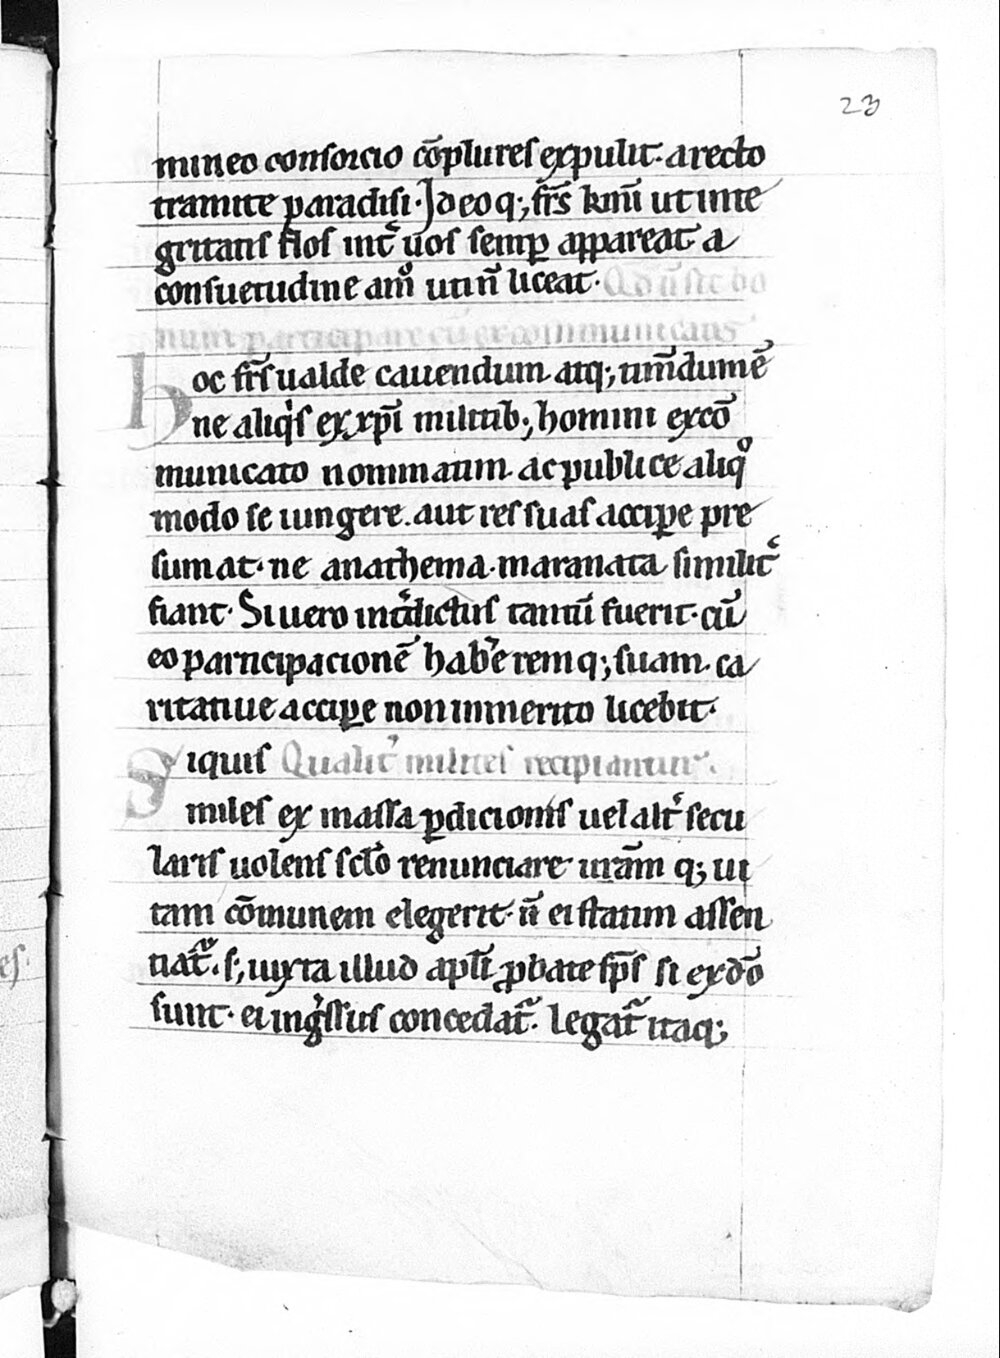 23
mineo consorcio cōplures expulit· a recto
tramite paradisi· Ideoq; fr̄s kmī ut inte
gritatis flos int̉ uos semꝑ appareat a
consuetudine amͦ uti n̄ liceat· Qd̄ n̄ sit bo
num participare cū excommunicatis
Hoc fr̄s ualde cauendum atq; timdumē
ne aliq̇s ex xp̄i militib; homini excō
municato nominatim· ac publice aliqͦ
modo se iungere· aut res suas acciꝑe pre
sumat· ne anathema· maranata similit̉
fiant· Si uero int̉dictus tantū fuerit· cū
eo participacionē hab̉e remq; suam· ca
ritatiue acciꝑe non inmerito licebit·
Siquis Qualit̉ milites recipiantur·
miles ex massa ꝑdicionis uel alt̉ secu
laris uolens sc̄lo renunciare· ur̄am q; ui
tam cōmunem elegerit· n̄ ei statim assen
tiat̉· s; iuxta illud apl̄i ꝓbate sp̄s si ex dō
sunt· ei ing̉ssus concedat̉· legat̉ itaq;